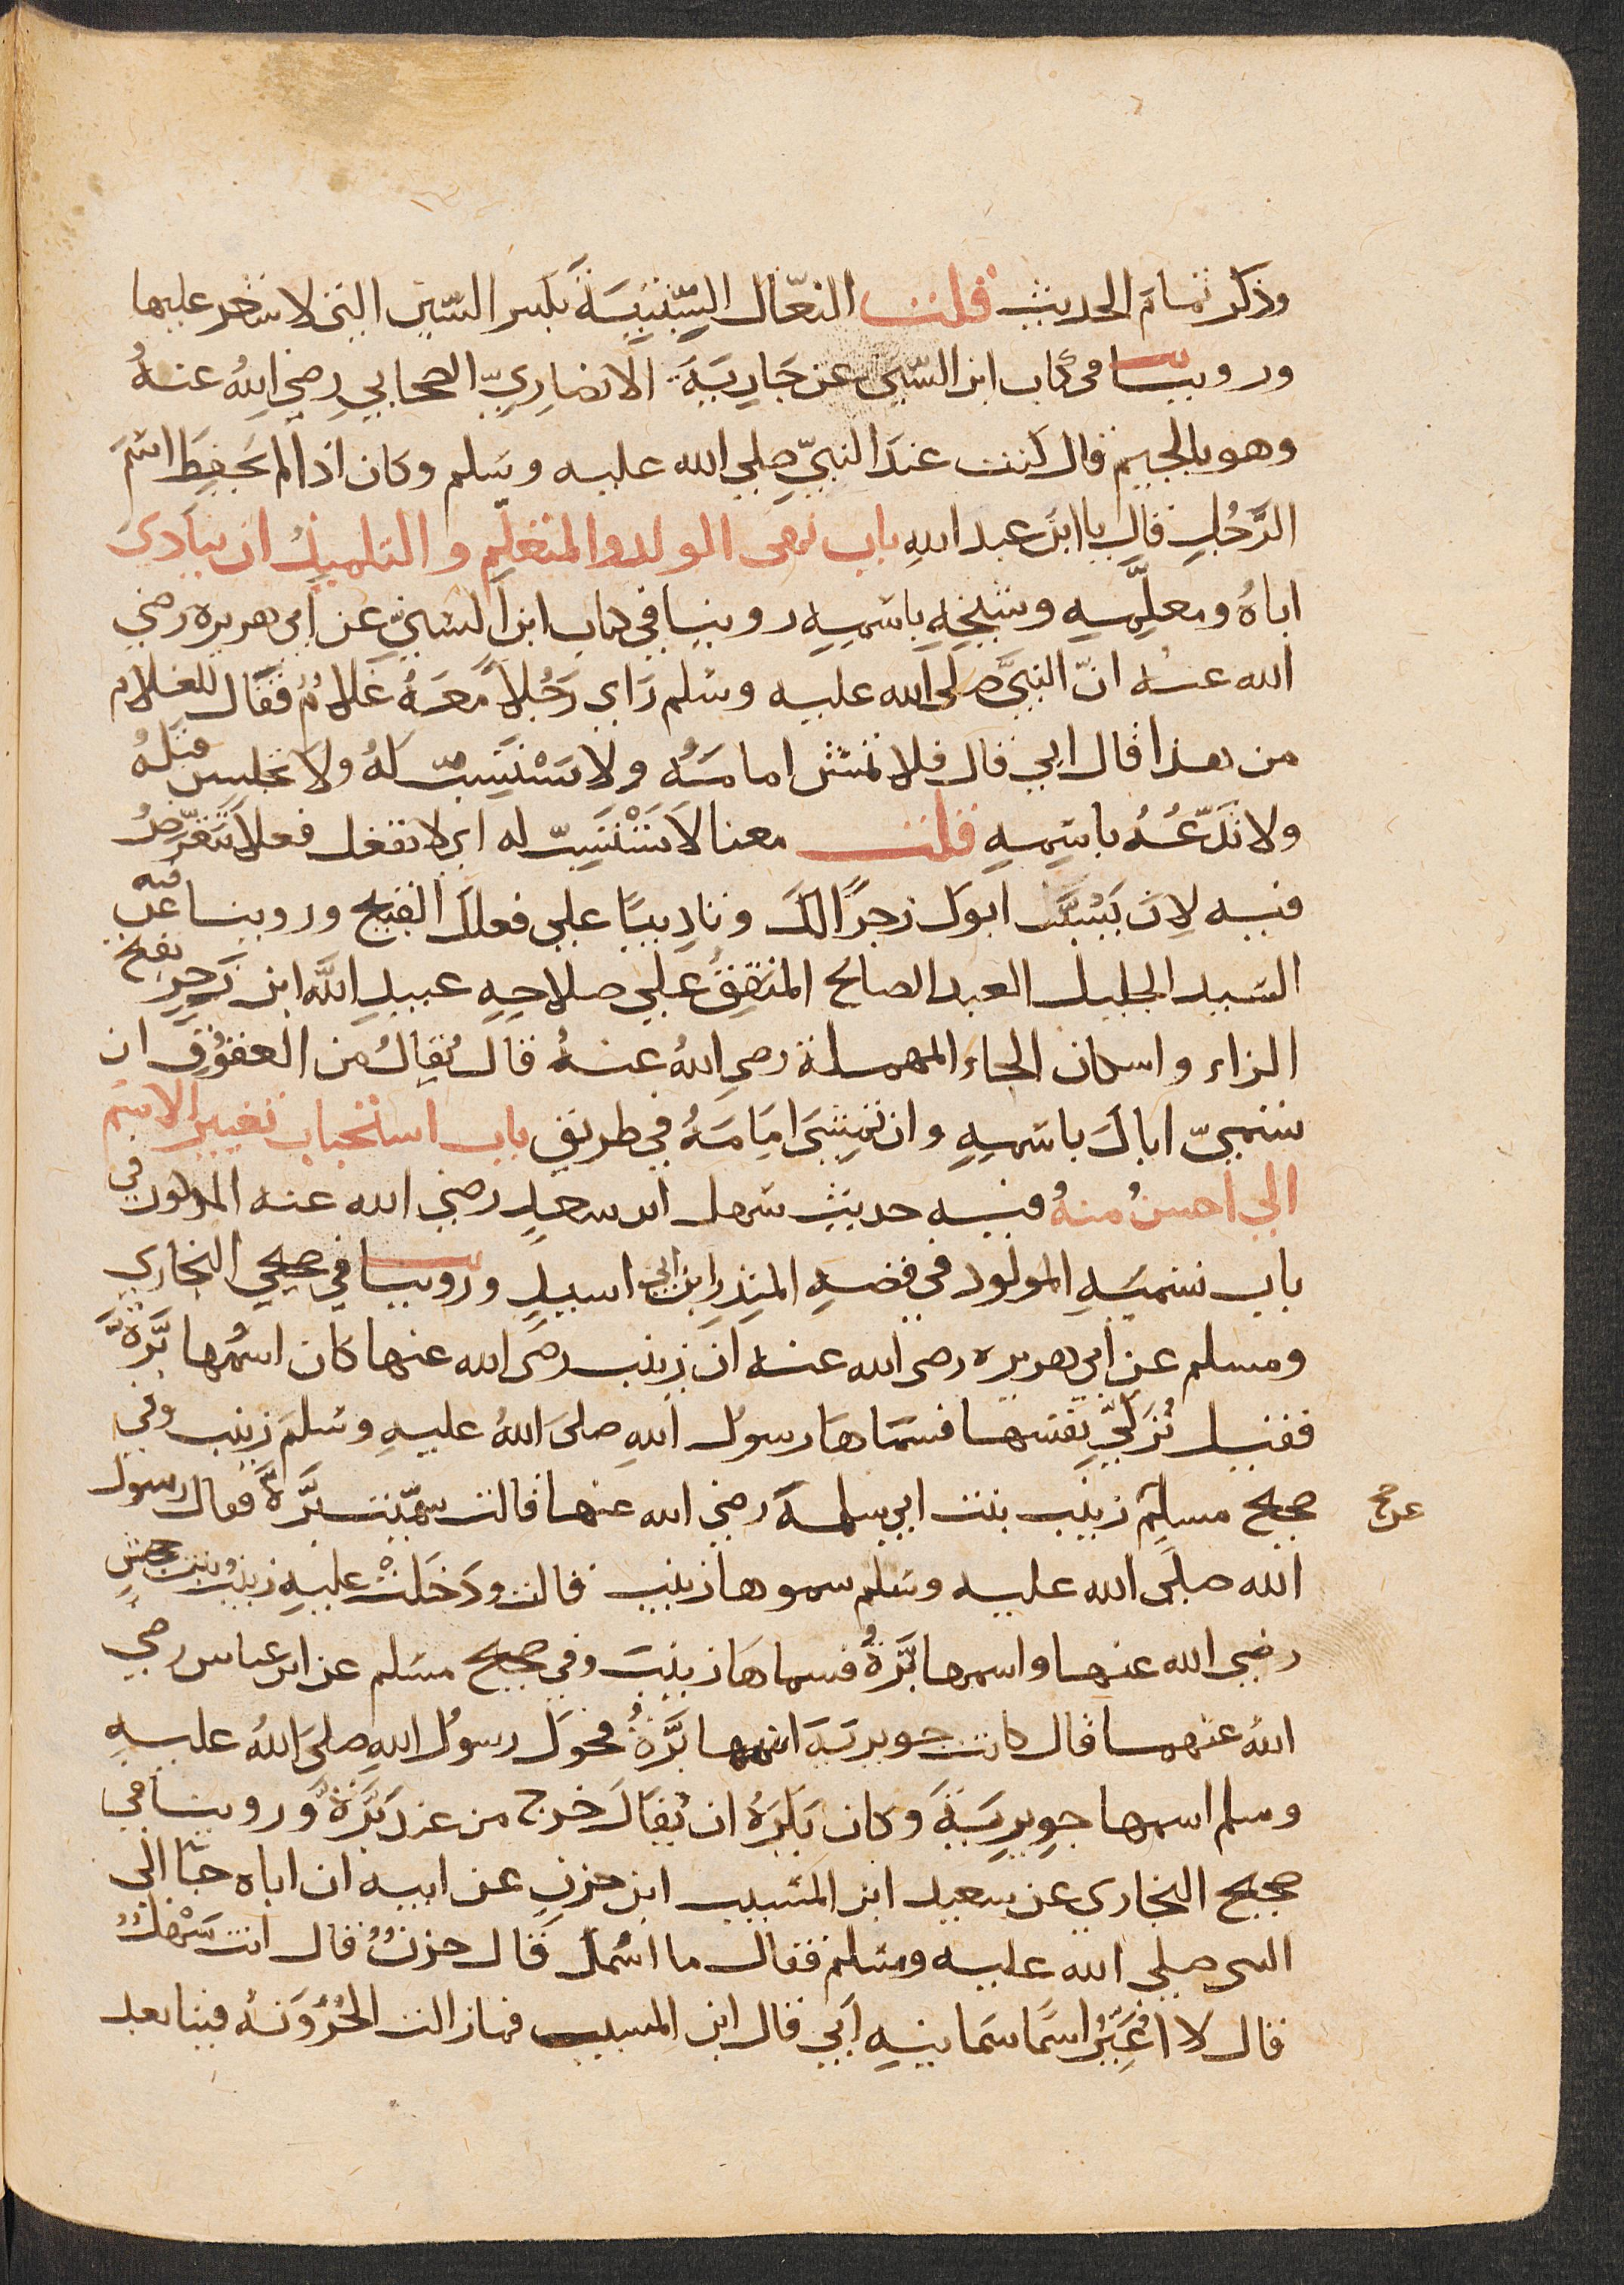 وذكر تمام الحديث قلت النعال السبتية بكسر السين التي لا شعر عليها
وروينا في كتاب ابن السني عن جارية الانصاري الصحابي رضي الله عنه
وهو بالجيم قال كنت عند النبي صلي الله عليه وسلم وكان اذا لم يحفظ اسم
الرجل قال يا ابن عبد الله باب نهي الولد والمتعلم والتلميذ ان ينادي
اباه ومعلمه وشيخه باسمه روينا في كتاب ابن السني عن ابي هريره رضي
الله عنه ان النبي صلى الله عليه وسلم راي رجلا معه غلام فقال للغلام
من هذا قال ابي قال فلا تمش امامه ولا تستسب له ولا تجلس قبله
ولا تدعه باسمه قلت معنا لا تستسب له اي لا تفعل فعلا تتعرض
فيه لان يسبك ابوك زجرا لك وتاديبا علي فعلك القبيح وروينا فيه عن
السيد الجليل العبد الصالح المتفق علي صلاحه عبيد الله ابن زحر بفتح
الزاء واسكان الحاء المهملة رضي الله عنه قال يقال من العقوق ان
تسمي اباك باسمه وان تمشي امامه في طريق باب استحباب تغيير الاسم
الي احسن منه فيه حديث سهل ابن سعد رضي الله عنه المذكور في
باب تسميه المولود في قصه المنذر ابن ابي اسيد وروينا في صحيحي البخاري
ومسلم عن ابي هريره رضي الله عنه ان زينب رضي الله عنها كان اسمها برة
فقيل تزكي نفسها فسماها رسول الله صلى الله عليه وسلم زينب وفي
صحيح مسلم زينب بنت ابي سلمة رضي الله عنها قالت سميت برة فقال رسول
عن صح
الله صلى الله عليه وسلم سموها زينب قالت ودخلت عليه زينب بنت جحش
رضي الله عنها واسمها برة فسماها زينب وفي صحيح مسلم عن ابن عباس رضي
الله عنهما قال كانت جويرية اسمها برة فحول رسول الله صلى الله عليه
وسلم اسمها جويرية وكان يكره ان يقال خرج من عند برة وروينا في
صحيح البخاري عن سعيد ابن المسيب ابن حزن عن ابيه ان اباه جا الي
النبي صلي الله عليه وسلم فقال ما اسمك قال حزن قال انت سهل
قال لا اغير اسما سمانيه ابي قال ابن المسيب فما زالت الحزونة فينا بعد